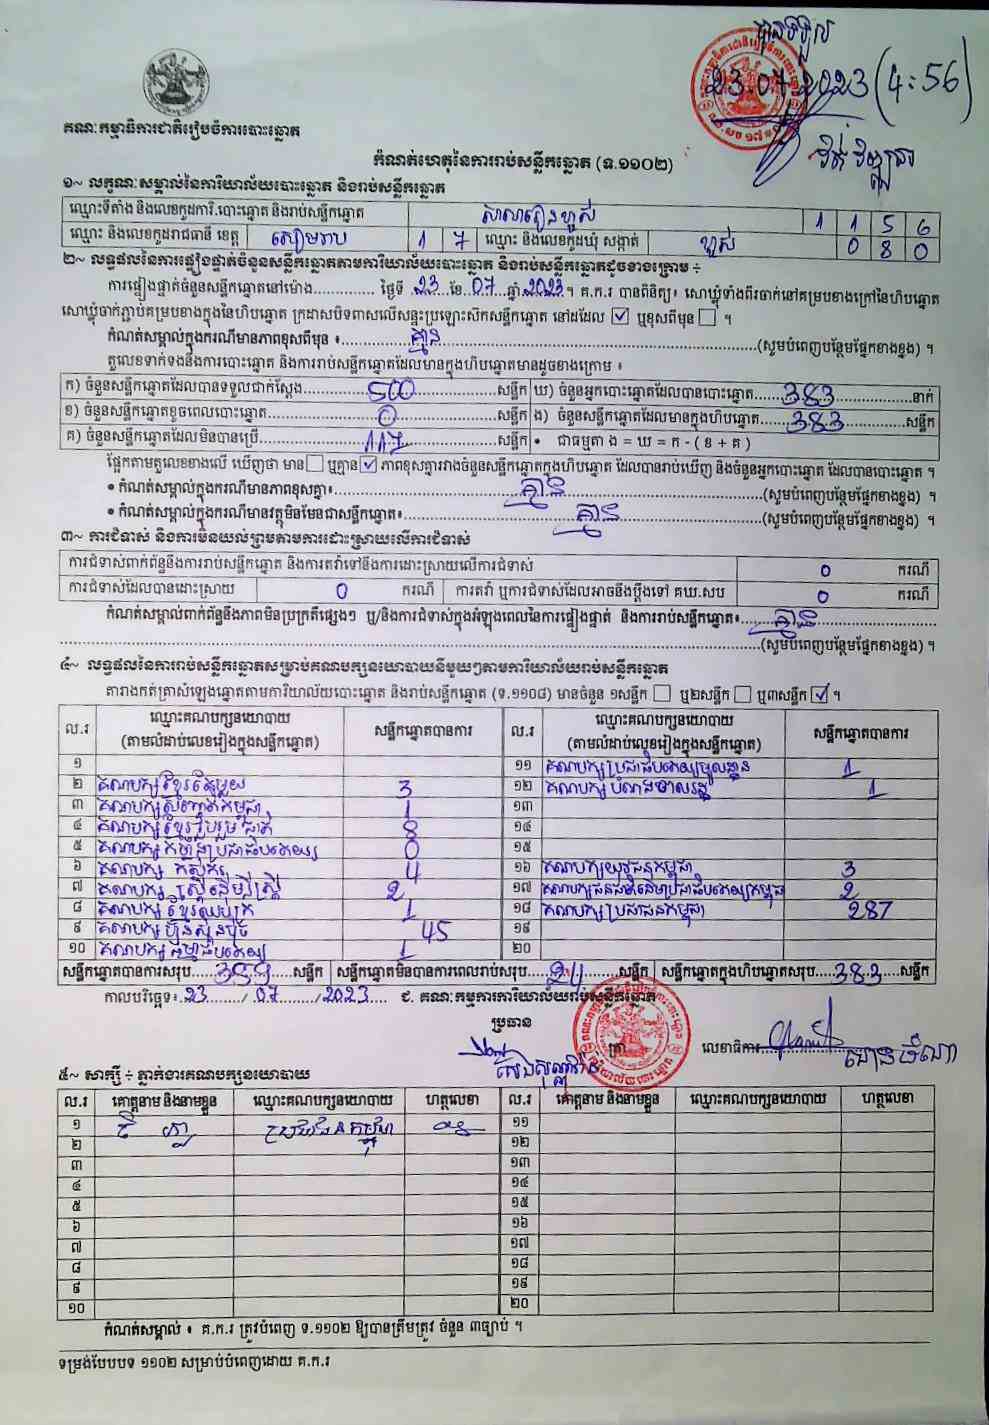 បានទទួល
23.07.2023 (4:56)
គណៈកម្មាធិការជាតិរៀបចំការបោះឆ្នោត
កំណត់ហេតុនៃការរាប់សន្លឹកឆ្នោត (ទ.១១០២)
១~ លក្ខណៈសម្គាល់នៃការិយាល័យបោះឆ្នោត និងរាប់សន្លឹកឆ្នោត
ឈ្មោះទីតាំង និងលេខកូដការិ.បោះឆ្នោត និងរាប់សន្លឹកឆ្នោត សាលារៀនឃ្លស់ 1 1 5 6
ឈ្មោះ និងលេខកូដរាជធានី ខេត្ត សៀមរាប 1 7 ឈ្មោះ និងលេខកូដឃុំ សង្កាត់ 0 8 0
២~ លទ្ធផលនៃការផ្ទៀងផ្ទាត់ចំនួនសន្លឹកឆ្នោតតាមការិយាល័យបោះឆ្នោត និងរាប់សន្លឹកឆ្នោតដូចខាងក្រោម ÷
ការផ្ទៀងផ្ទាត់ចំនួនសន្លឹកឆ្នោតនៅម៉ោង.............. ថ្ងៃទី 23 ខែ 07 ឆ្នាំ 2023 ។ គ.ក.រ បានពិនិត្យ៖ សោឃ្លុំទាំងពីរចាក់នៅគម្របខាងក្រៅនៃហិបឆ្នោត
សោឃ្លុំចាក់ភ្ជាប់គម្របខាងក្នុងនៃហិបឆ្នោត ក្រដាសបិទពាសលើសន្ទះប្រឡោះសិកសន្លឹកឆ្នោត នៅដដែល ☑ ឬខុសពីមុន ☐ ។
កំណត់សម្គាល់ក្នុងករណីមានភាពខុសពីមុន ៖ គ្មាន (សូមបំពេញបន្ថែមផ្នែកខាងខ្នង) ។
តួលេខទាក់ទងនឹងការបោះឆ្នោត និងការរាប់សន្លឹកឆ្នោតដែលមានក្នុងហិបឆ្នោតមានដូចខាងក្រោម ៖
ក) ចំនួនសន្លឹកឆ្នោតដែលបានទទួលជាក់ស្តែង 500 សន្លឹក ឃ) ចំនួនអ្នកបោះឆ្នោតដែលបានបោះឆ្នោត 383 នាក់
ខ) ចំនួនសន្លឹកឆ្នោតខូចពេលបោះឆ្នោត 0 សន្លឹក ង) ចំនួនសន្លឹកឆ្នោតដែលមានក្នុងហិបឆ្នោត 383 សន្លឹក
គ) ចំនួនសន្លឹកឆ្នោតដែលមិនបានប្រើ 117 សន្លឹក • ជាធម្មតា ង = ឃ = ក - ( ខ + គ )
ផ្អែកតាមតួលេខខាងលើ ឃើញថា មាន ☐ ឬគ្មាន ☑ ភាពខុសគ្នារវាងចំនួនសន្លឹកឆ្នោតក្នុងហិបឆ្នោត ដែលបានរាប់ឃើញ និងចំនួនអ្នកបោះឆ្នោត ដែលបានបោះឆ្នោត ។
• កំណត់សម្គាល់ក្នុងករណីមានភាពខុសគ្នា៖ គ្មាន (សូមបំពេញបន្ថែមផ្នែកខាងខ្នង) ។
• កំណត់សម្គាល់ក្នុងករណីមានវត្ថុមិនមែនជាសន្លឹកឆ្នោត៖ គ្មាន (សូមបំពេញបន្ថែមផ្នែកខាងខ្នង) ។
៣~ ការជំទាស់ និងការមិនយល់ព្រមតាមការដោះស្រាយលើការជំទាស់
ការជំទាស់ពាក់ព័ន្ធនឹងការរាប់សន្លឹកឆ្នោត និងការតវ៉ាទៅនឹងការដោះស្រាយលើការជំទាស់ 0 ករណី
ការជំទាស់ដែលបានដោះស្រាយ 0 ករណី ការតវ៉ា ឬការជំទាស់ដែលអាចនឹងប្តឹងទៅ គឃ.សប 0 ករណី
កំណត់សម្គាល់ពាក់ព័ន្ធនឹងភាពមិនប្រក្រតីផ្សេងៗ ឬ/និងការជំទាស់ក្នុងអំឡុងពេលនៃការផ្ទៀងផ្ទាត់ និងការរាប់សន្លឹកឆ្នោត៖ គ្មាន
(សូមបំពេញបន្ថែមផ្នែកខាងខ្នង) ។
៤~ លទ្ធផលនៃការរាប់សន្លឹកឆ្នោតសម្រាប់គណបក្សនយោបាយនីមួយៗតាមការិយាល័យរាប់សន្លឹកឆ្នោត
តារាងកត់ត្រាសំឡេងឆ្នោតតាមការិយាល័យបោះឆ្នោត និងរាប់សន្លឹកឆ្នោត (ទ.១១០៨) មានចំនួន ១សន្លឹក ☐ ឬ២សន្លឹក ☐ ឬ៣សន្លឹក ☑ ។
ល.រ ឈ្មោះគណបក្សនយោបាយ (តាមលំដាប់លេខរៀងក្នុងសន្លឹកឆ្នោត) សន្លឹកឆ្នោតបានការ ល.រ ឈ្មោះគណបក្សនយោបាយ (តាមលំដាប់លេខរៀងក្នុងសន្លឹកឆ្នោត) សន្លឹកឆ្នោតបានការ
១ ១១ គណបក្សប្រជាធិបតេយ្យមូលដ្ឋាន 1
២ គណបក្សខ្មែរតែមួយ 3 ១២ គណបក្ស 1
៣ គណបក្សសញ្ជាតិកម្ពុជា 1 ១៣
៤ គណបក្សខ្មែររួបរួមជាតិ 8 ១៤
៥ គណបក្សកម្លាំងប្រជាធិបតេយ្យ 0 ១៥
៦ គណបក្ស កសិករ 4 ១៦ គណបក្សយុវជនកម្ពុជា 3
៧ គណបក្ស ស្ត្រីដើម្បីស្ត្រី 2 ១៧ គណបក្សជនជាតិដើមប្រជាធិបតេយ្យកម្ពុជា 2
៨ គណបក្ស ខ្មែរឈប់ក្រ 1 ១៨ គណបក្សប្រជាជនកម្ពុជា 287
៩ គណបក្ស ហ៊្វុនស៊ិនប៉ិច 45 ១៩
១០ គណបក្ស ធម្មាធិបតេយ្យ 1 ២០
សន្លឹកឆ្នោតបានការសរុប 359 សន្លឹក សន្លឹកឆ្នោតមិនបានការពេលរាប់សរុប 24 សន្លឹក សន្លឹកឆ្នោតក្នុងហិបឆ្នោតសរុប 383 សន្លឹក
កាលបរិច្ឆេទ៖ 23 / 07 / 2023 ជ. គណៈកម្មការការិយាល័យរាប់សន្លឹកឆ្នោត
ប្រធាន
ត្រា លេខាធិការ
៥~ សាក្សី ÷ ភ្នាក់ងារគណបក្សនយោបាយ
ល.រ គោត្តនាម និងនាមខ្លួន ឈ្មោះគណបក្សនយោបាយ ហត្ថលេខា ល.រ គោត្តនាម និងនាមខ្លួន ឈ្មោះគណបក្សនយោបាយ ហត្ថលេខា
១ ប្រជាជនកម្ពុជា ១១
២ ១២
៣ ១៣
៤ ១៤
៥ ១៥
៦ ១៦
៧ ១៧
៨ ១៨
៩ ១៩
១០ ២០
កំណត់សម្គាល់ ៖ គ.ក.រ ត្រូវបំពេញ ទ.១១០២ ឱ្យបានត្រឹមត្រូវ ចំនួន ៣ច្បាប់ ។
ទម្រង់បែបបទ ១១០២ សម្រាប់បំពេញដោយ គ.ក.រ